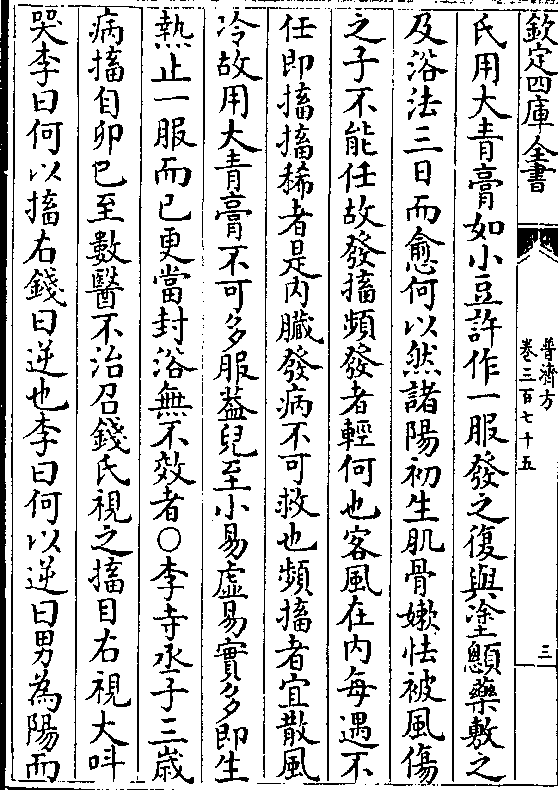 欽定四庫全書
普濟方
卷三百七十五
三
氏用大青膏如小豆許作一服發之復與塗顖藥敷之
及浴法三日而愈何以然諸陽初生肌骨嫰怯被風傷
之子不能任故發搐頻發者輕何也客風在内每遇不
任即搐搐稀者是内臟發病不可救也頻搐者宜散風
冷故用大青膏不可多服葢兒至小易虚易實多即生
熱止一服而已更當封浴無不效者○李寺丞子三歳
病搐自卯巳至數醫不治召錢氏視之搐目右視大呌
哭李曰何以搐右錢曰逆也李曰何以逆曰男為陽而